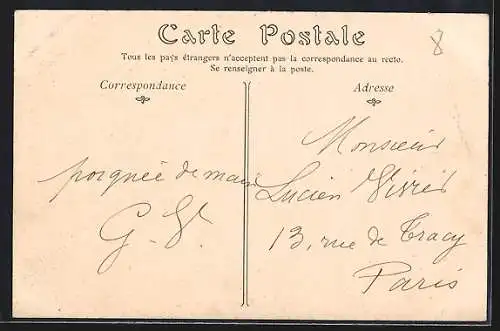 Carte Postale
Tous les pays étrangers n'acceptent pas la correspondance au recto.
Se renseigner à la poste.
Correspondance
poignée de main
G. V.
Adresse
Monsieur
Lucien
13, rue de Tracy
Paris